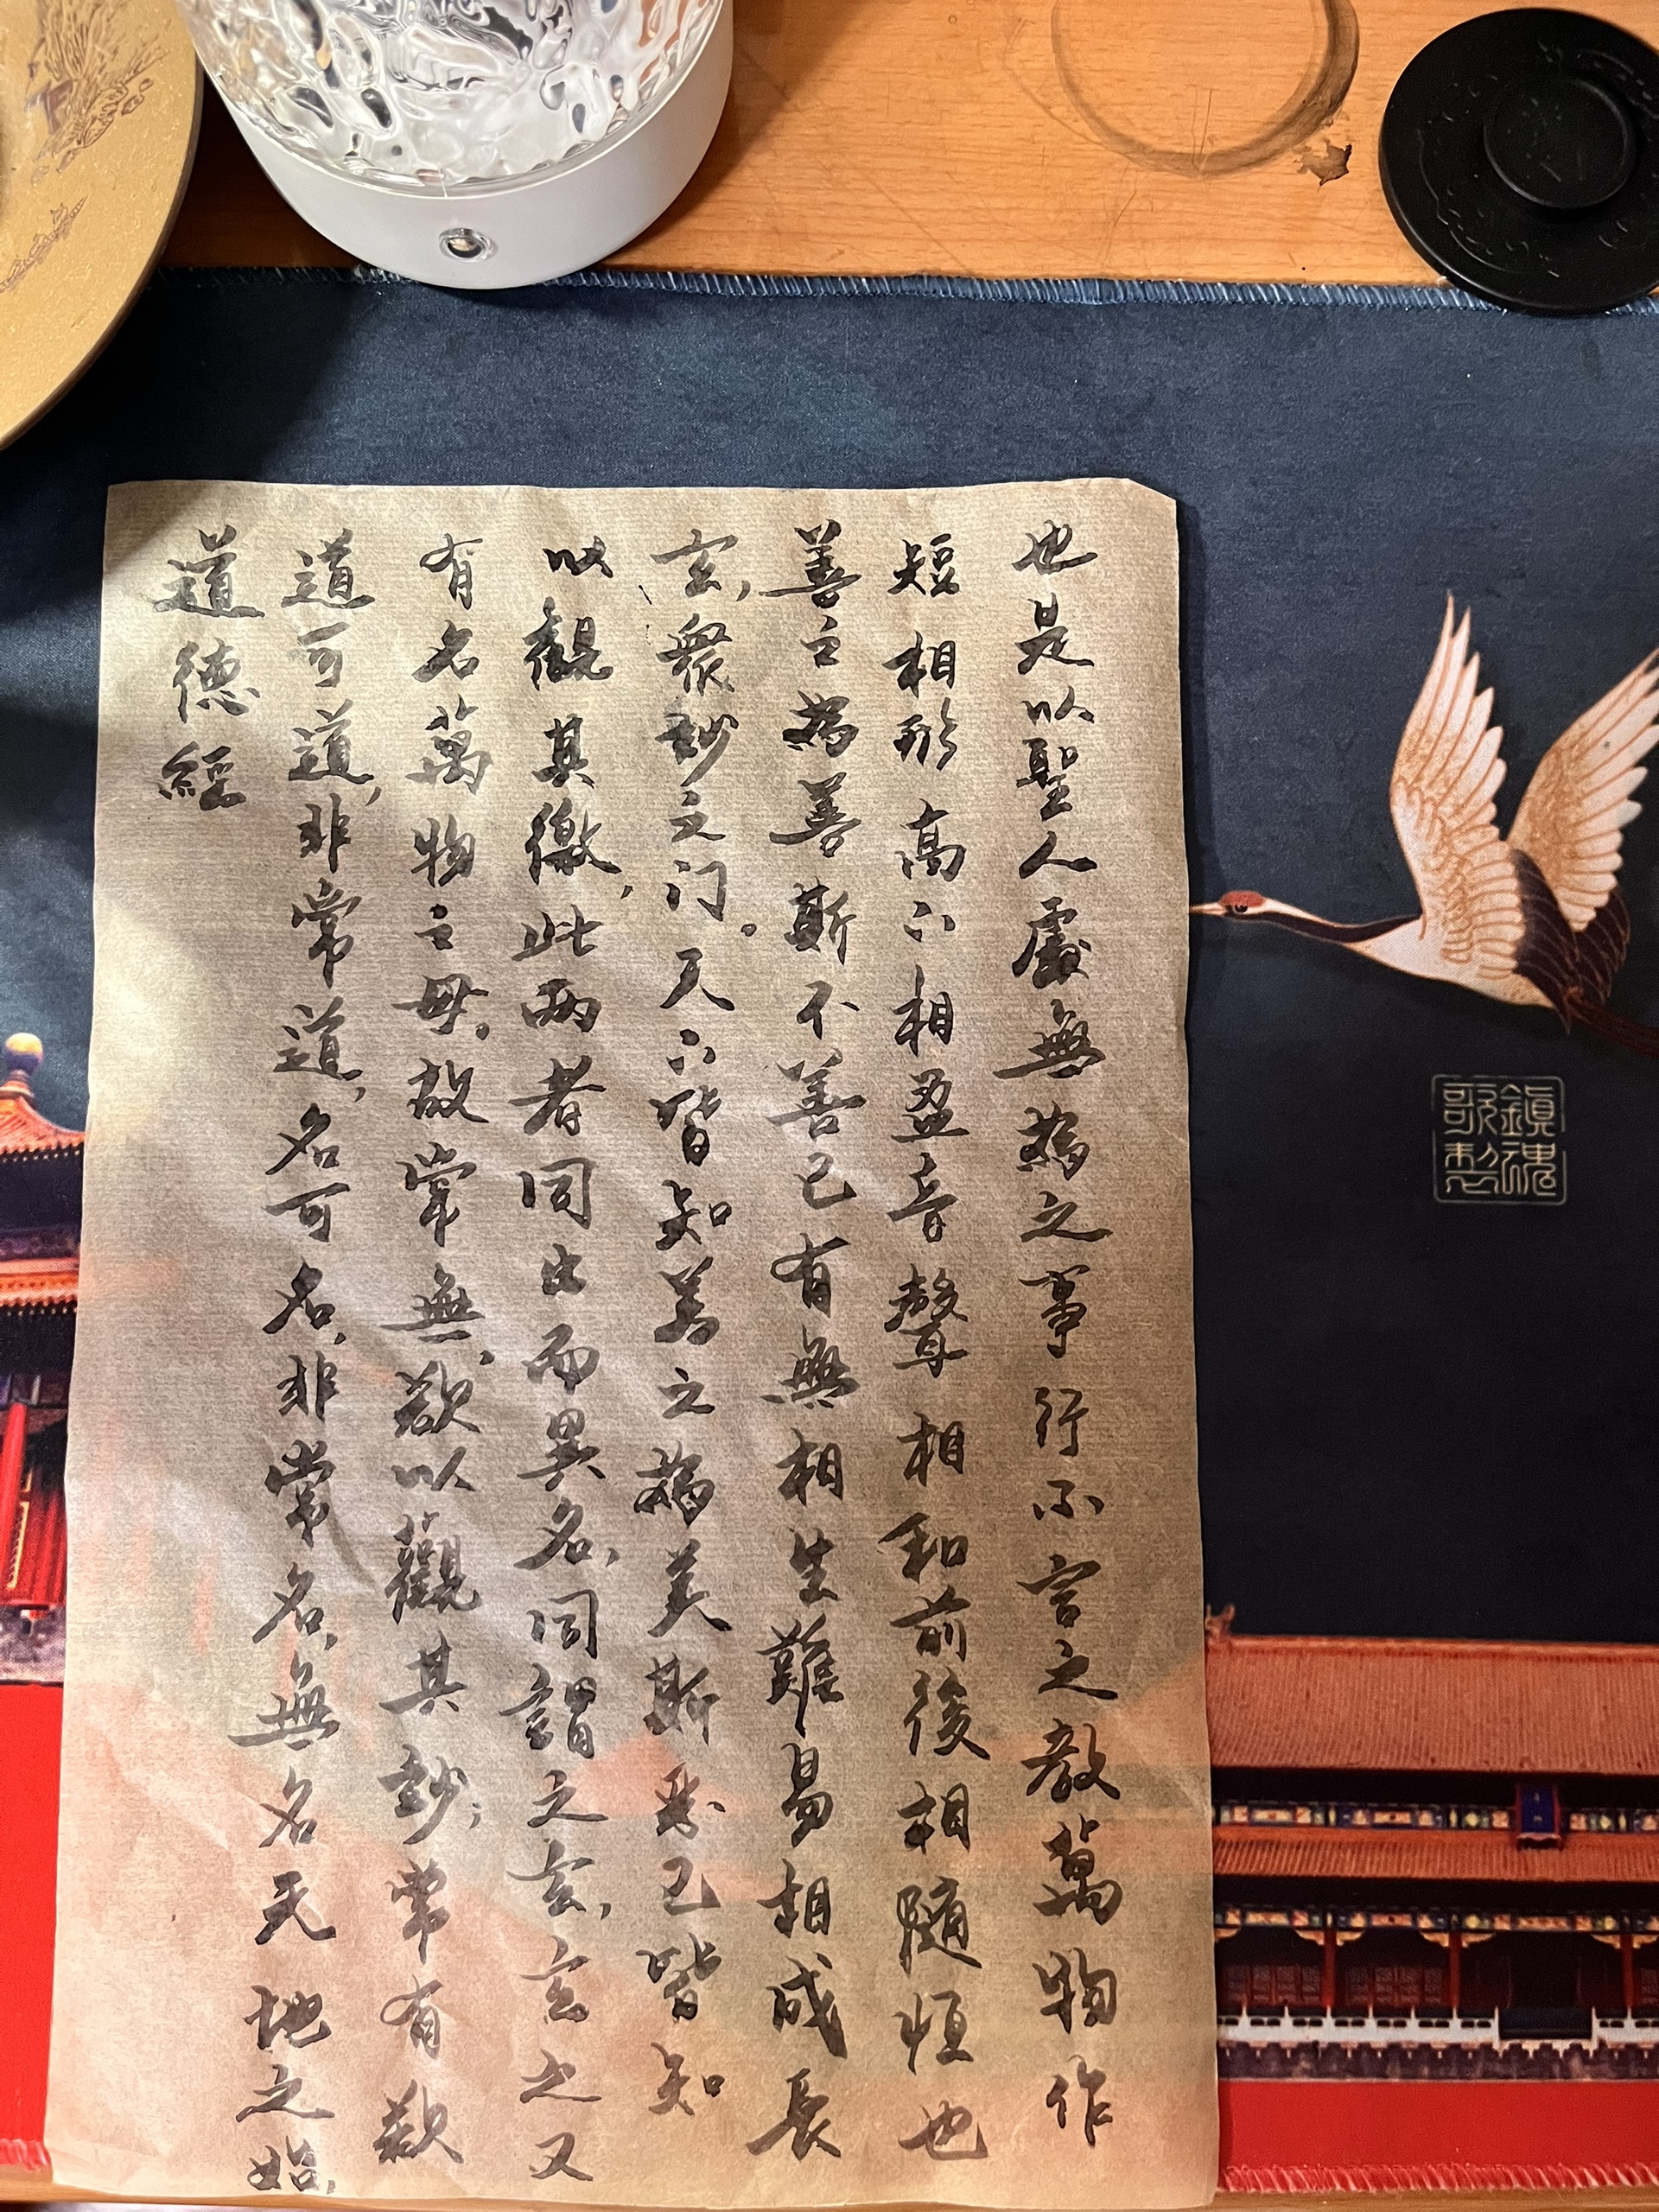 道德經
道可道,非常道,名可名,非常名,無名天地之始,
有名萬物之母,故常無,欲以觀其玅;常有欲
以觀其徼,此两者同出而異名,同謂之玄,玄之又
玄,衆玅之门。天下皆知美之為美斯惡已皆知
善之為善斯不善已有無相生難易相成長
短相形高下相盈音聲相和前後相隨恒也
也是以聖人處無為之事行不言之教萬物作
鎮魂
歌製